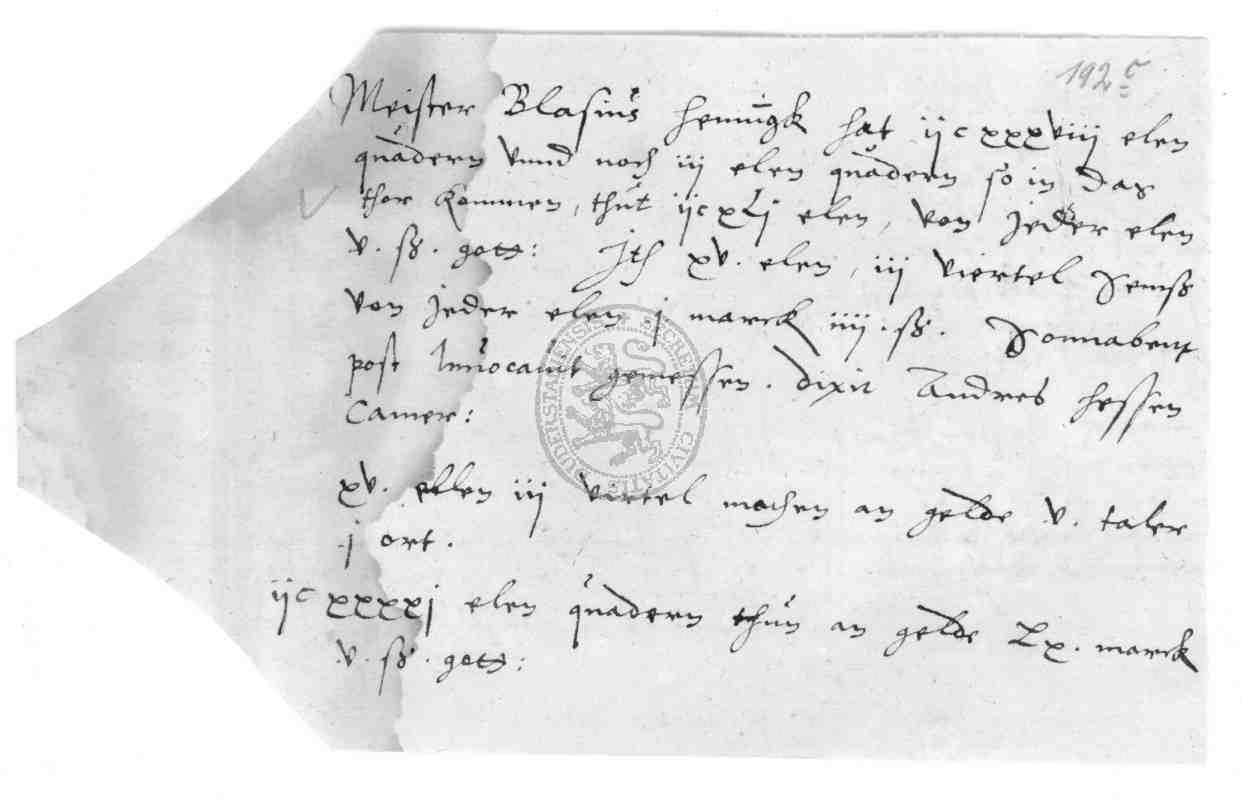 192 c
Meister Blasius hat ijc xxxviij elen
quadern vnnd noch iij elen quadern so in das
thor kommen, thut ijc xLj elen, von jeder elen
v. sß. gott: Jth xv. elen, iij viertel Semß
von jeder elen .j marck iiij .sß. Sonnabent
post Inuocauit gemessen. dixit Andres hessen
Camer:
xv. ellen iij virtel machen an gelde .v. taler
.j ort.
ijc xxxxj elen quadern thun an gelde Lx. marck
.v. sß. gott:
SECRETUM CIVITATIS DUDERSTATENSIS